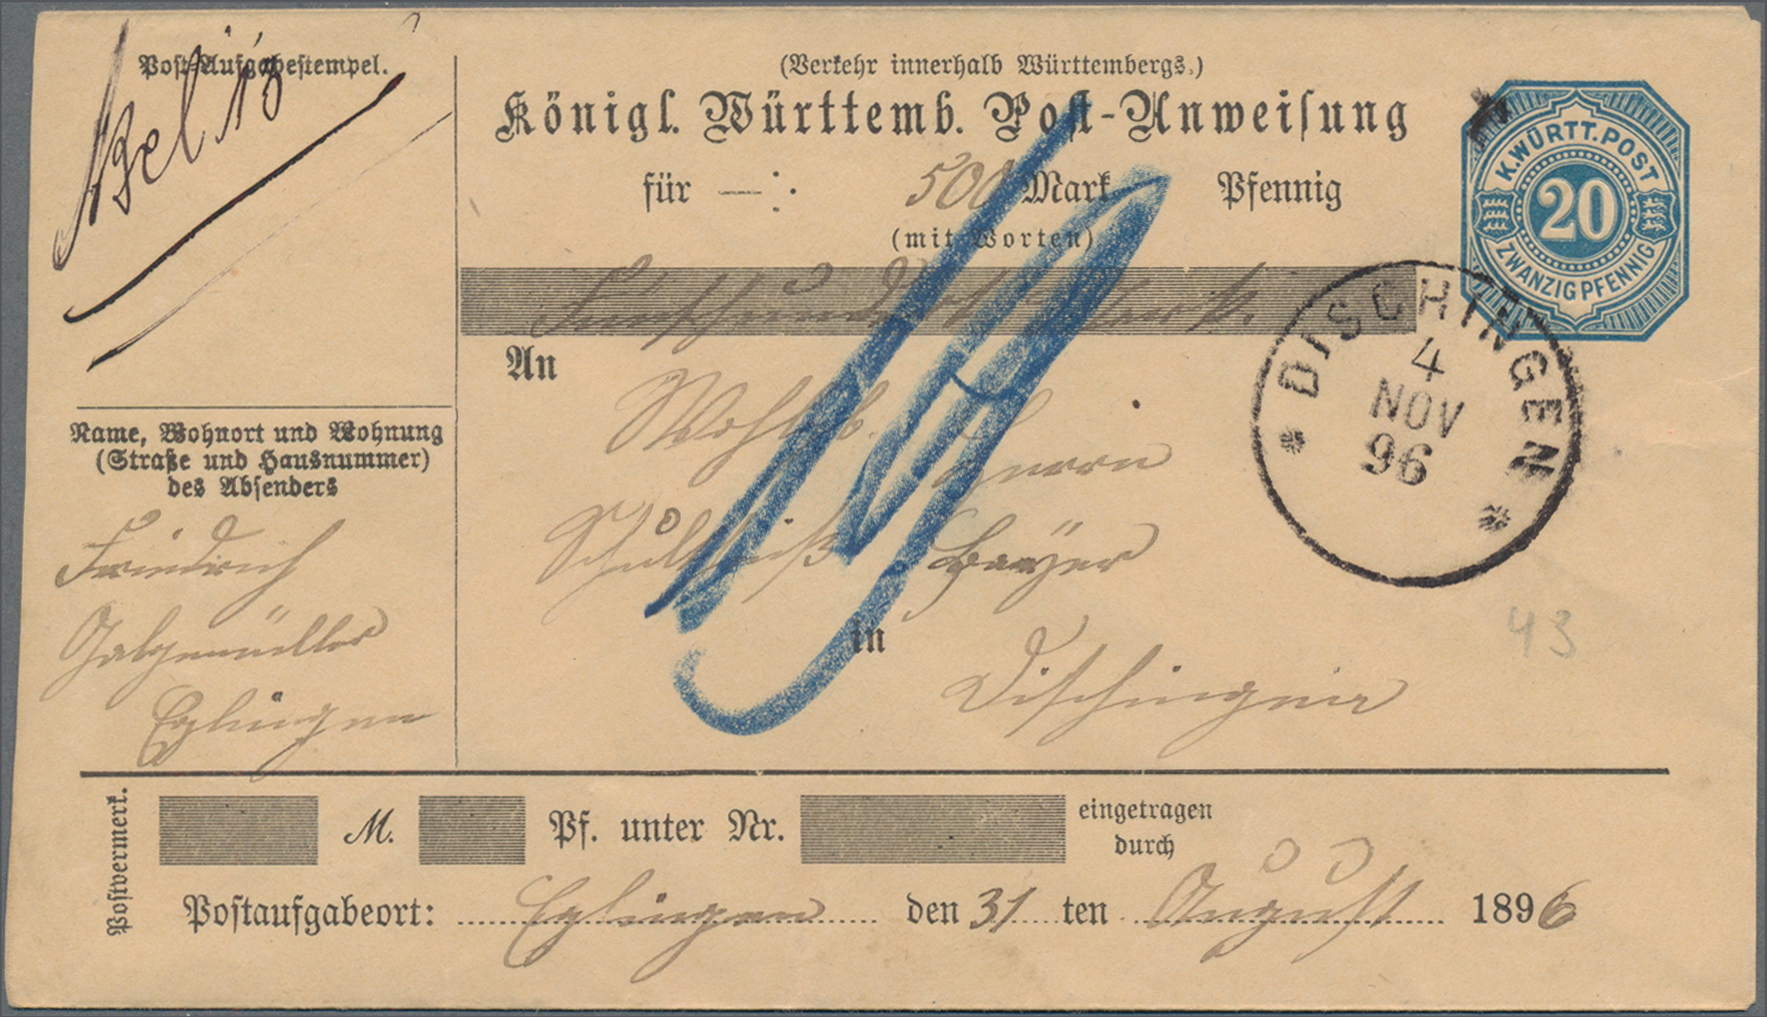 Post-Aufgabestempel.
(Verkehr innerhalb Württembergs.)
Königl. Württemb. Post-Anweisung
für —: 500 Mark Pfennig
(mit Worten)
Fünfhundert Mark.
K. WÜRTT. POST
20
ZWANZIG PFENNIG
An
Wohlgeb. Herrn
Schultheiß Bayer
in
Dischingen
DISCHINGEN
4
NOV
96
43
Name, Wohnort und Wohnung
(Straße und Hausnummer)
des Absenders
Friedrich
Galgenmüller
Eglingen
Postvermerk.
M. Pf. unter Nr. eingetragen
durch
Postaufgabeort: Eglingen den 31 ten August 1896